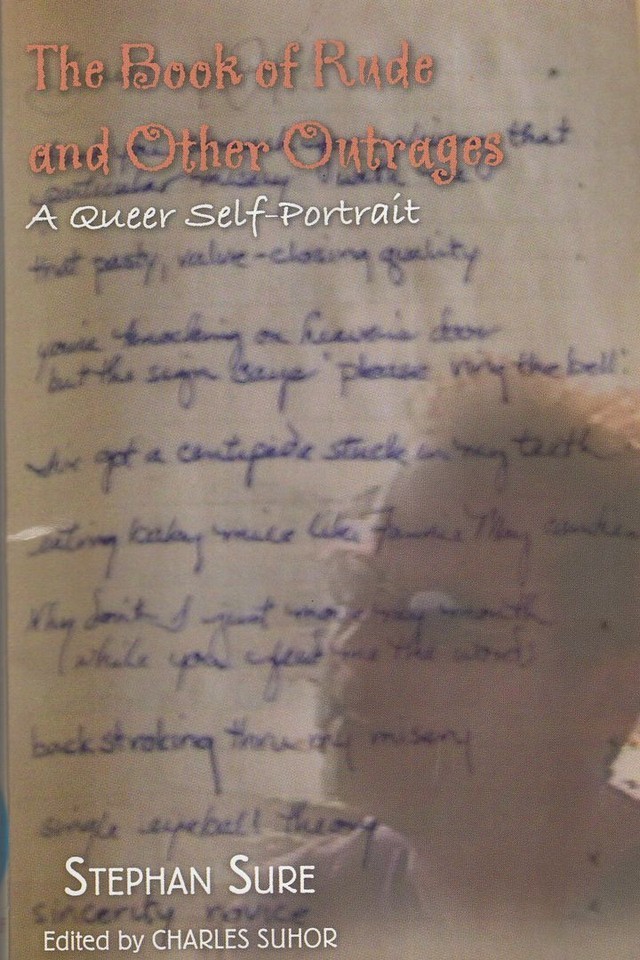 The Book of Rude
and Other Outrages
that
particular misery
A Queer Self-Portrait
that pasty, valve-closing quality
you're knocking on heaven's door
but the sign says "please ring the bell"
I've got a centipede stuck in my teeth
eating baby mice like Fannie May candies
Why don't I just move my mouth
(while you feed me the words)
backstroking thru my misery
single eyeball theory
STEPHAN SURE
sincerity novice
Edited by CHARLES SUHOR